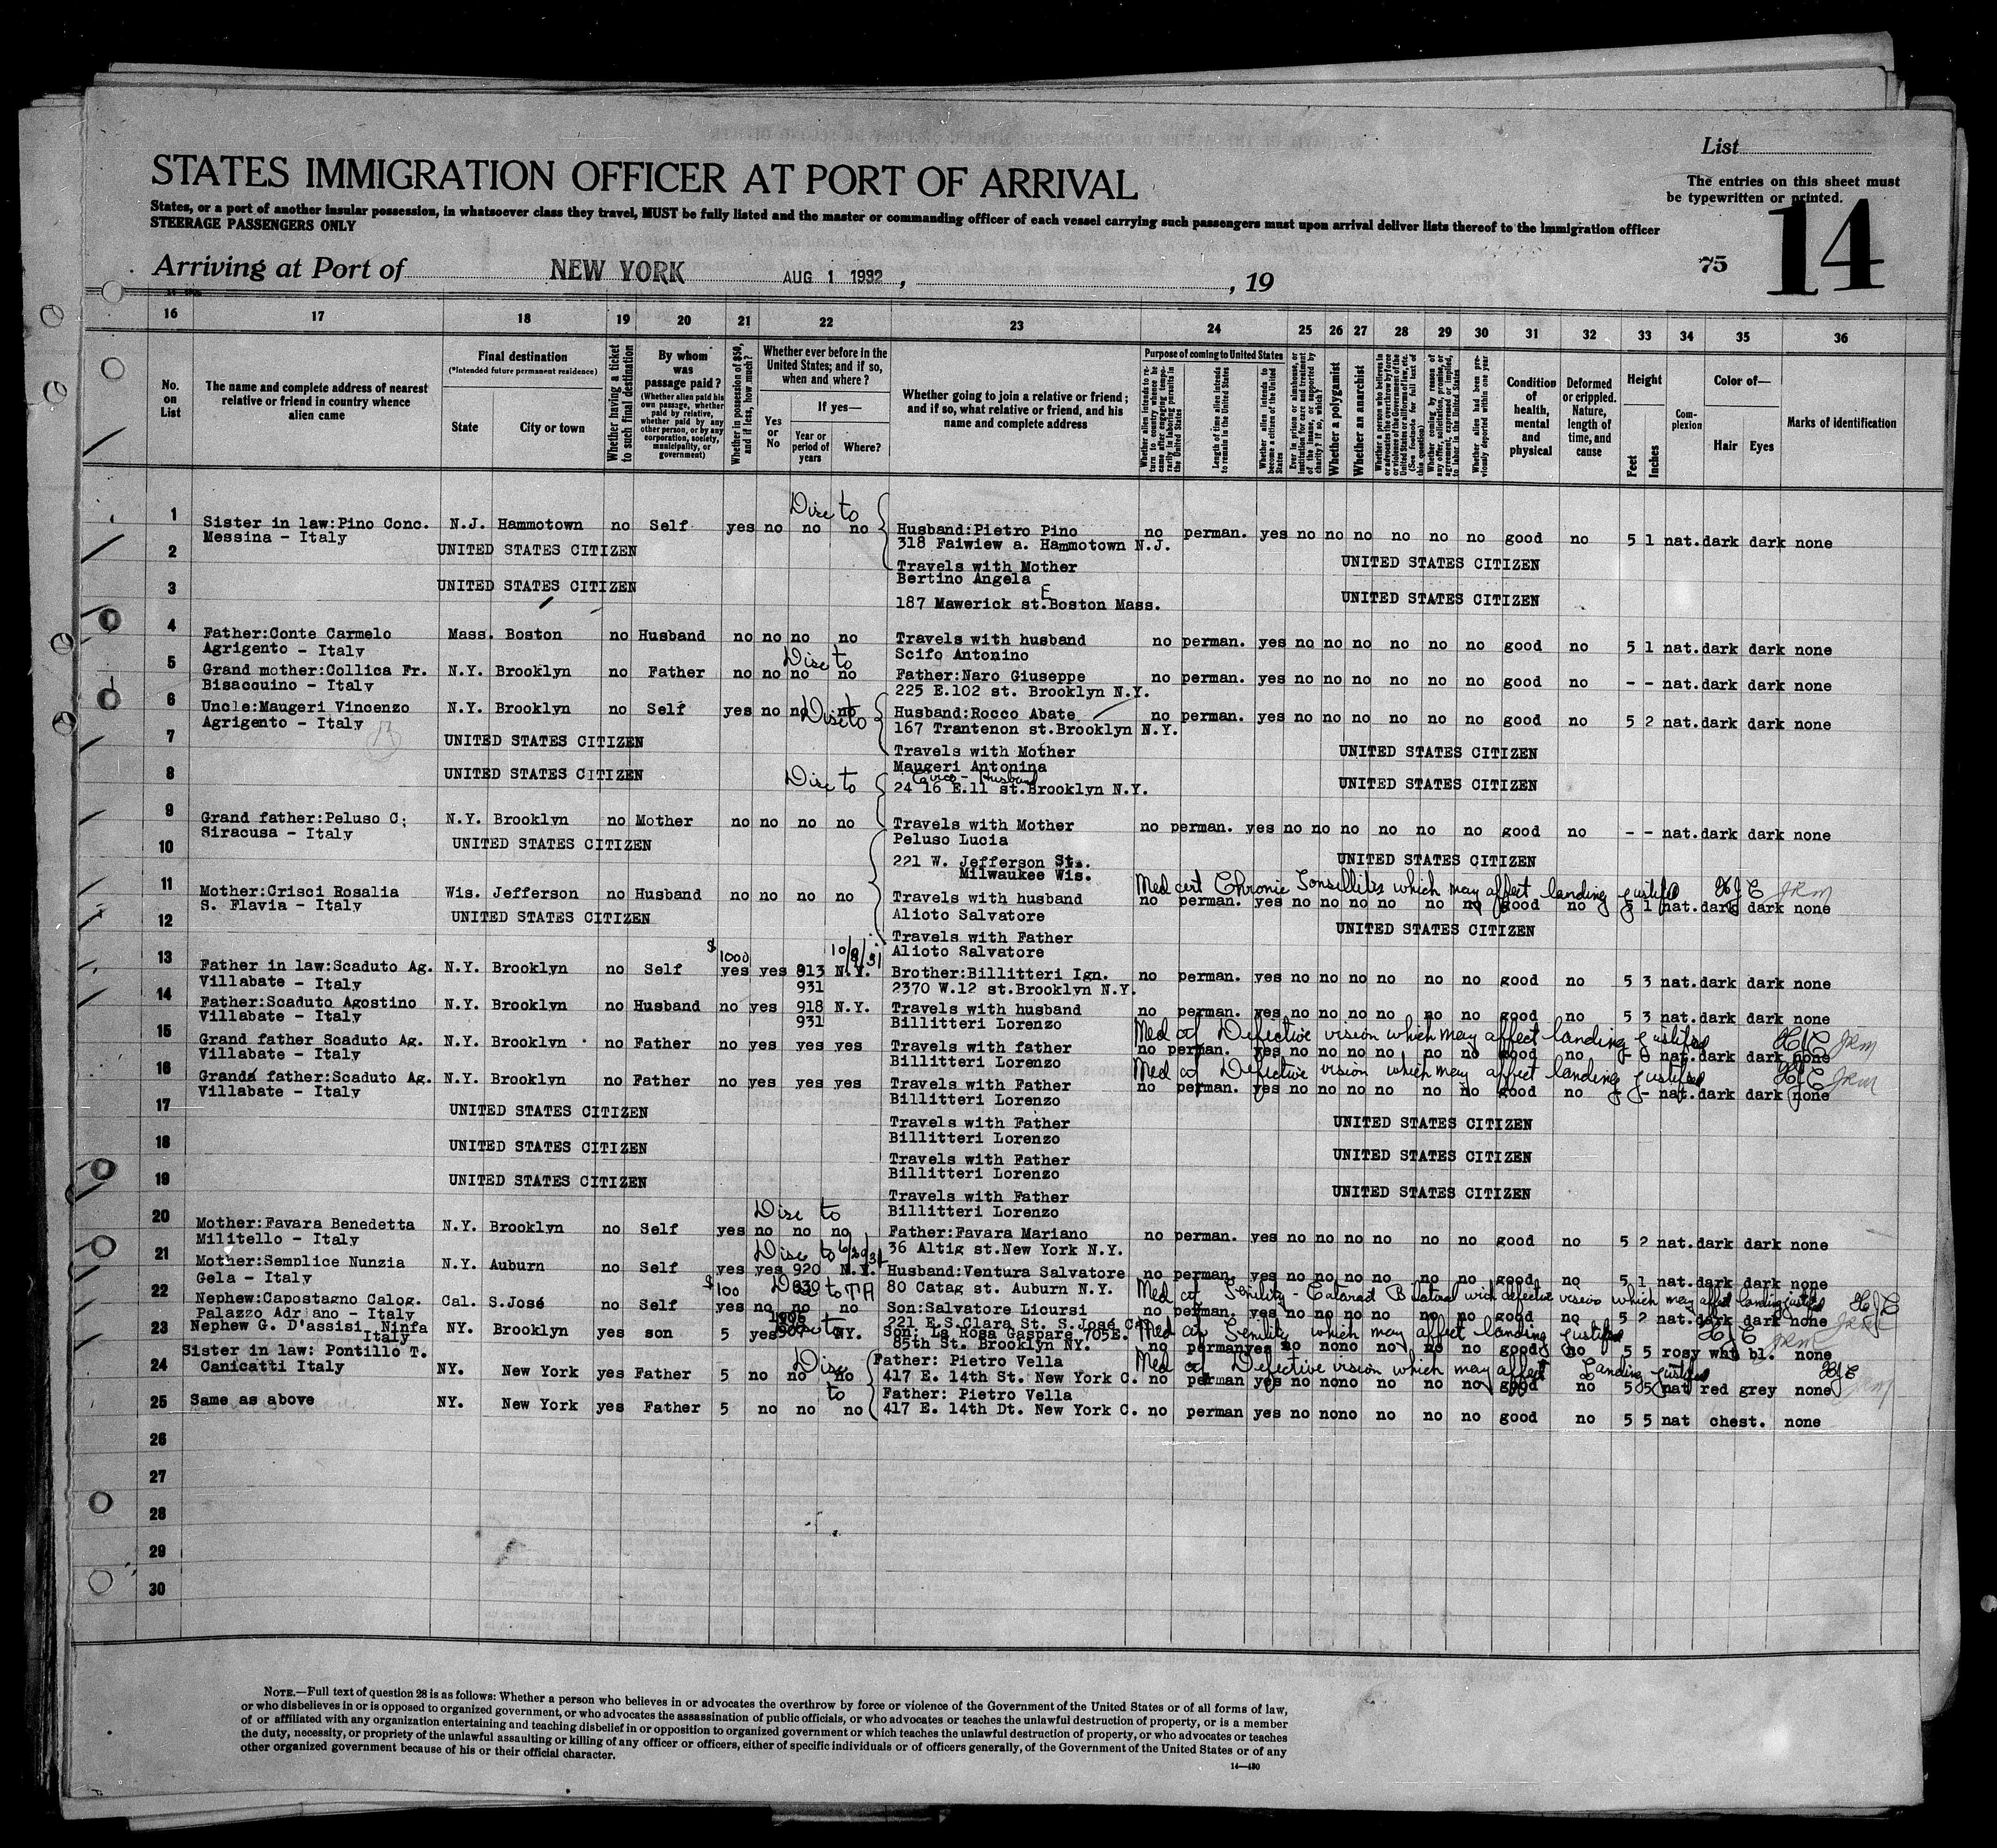 List
STATES IMMIGRATION OFFICER AT PORT OF ARRIVAL
The entries on this sheet must
be typewritten or printed.
States, or a port of another insular possession, in whatsoever class they travel, MUST be fully listed and the master or commanding officer of each vessel carrying such passengers must upon arrival deliver lists thereof to the immigration officer
STEERAGE PASSENGERS ONLY
14
75
Arriving at Port of NEW YORK AUG 1 1932, , 19
16 17 18 19 20 21 22 23 24 25 26 27 28 29 30 31 32 33 34 35 36
No. on List
The name and complete address of nearest relative or friend in country whence alien came
Final destination
(*intended future permanent residence)
State
City or town
Whether having a ticket to such final destination
By whom was passage paid?
(Whether alien paid his own passage, whether paid by relative, whether paid by any other person, or by any corporation, society, municipality, or government)
Whether in possession of $50, and if less, how much?
Whether ever before in the United States; and if so, when and where?
Yes or No
If yes—
Year or period of years
Where?
Whether going to join a relative or friend; and if so, what relative or friend, and his name and complete address
Purpose of coming to United States
Whether alien intends to return to country whence he came after engaging temporarily in laboring pursuits in the United States
Length of time alien intends to remain in the United States
Whether alien intends to become a citizen of the United States
Ever in prison or almshouse, or institution for care and treatment of the insane, or supported by charity? If so, which?
Whether a polygamist
Whether an anarchist
Whether a person who believes in or advocates the overthrow by force or violence of the Government of the United States or all forms of law, etc. (See footnote for full text of this question)
Whether coming by reason of any offer, solicitation, promise, or agreement, expressed or implied, to labor in the United States
Whether alien had been previously deported within one year
Condition of health, mental and physical
Deformed or crippled. Nature, length of time, and cause
Height
Feet
Inches
Complexion
Color of—
Hair
Eyes
Marks of identification
1 Sister in law:Pino Conc. N.J. Hammotown no Self yes no no no Husband:Pietro Pino no perman. yes no no no no no no good no 5 1 nat. dark dark none
Disc to
Messina - Italy 318 Faiwiew a. Hammotown N.J.
2 UNITED STATES CITIZEN Travels with Mother UNITED STATES CITIZEN
Bertino Angela
3 UNITED STATES CITIZEN UNITED STATES CITIZEN
E
187 Mawerick st.Boston Mass.
4 Father:Conte Carmelo Mass. Boston no Husband no no no no Travels with husband no perman. yes no no no no no no good no 5 1 nat. dark dark none
Agrigento - Italy Scifo Antonino
Disc to
5 Grand mother:Collica Fr. N.Y. Brooklyn no Father no no no no Father:Naro Giuseppe no perman. yes no no no no no no good no - - nat. dark dark none
Bisacquino - Italy 225 E.102 st. Brooklyn N.Y.
6 Uncle:Maugeri Vincenzo N.Y. Brooklyn no Self yes no no no Husband:Rocco Abate no perman. yes no no no no no no good no 5 2 nat. dark dark none
Disc to
Agrigento - Italy 167 Trantenon st.Brooklyn N.Y.
7 UNITED STATES CITIZEN Travels with Mother UNITED STATES CITIZEN
Maugeri Antonina
8 UNITED STATES CITIZEN Disc to 24 16 E.11 st.Brooklyn N.Y. UNITED STATES CITIZEN
Husband
9 Grand father:Peluso C: N.Y. Brooklyn no Mother no no no no Travels with Mother no perman. yes no no no no no no good no - - nat. dark dark none
Siracusa - Italy Peluso Lucia
10 UNITED STATES CITIZEN 221 W. Jefferson St. UNITED STATES CITIZEN
Milwaukee Wis.
Med cert Chronic Tonsillitis which may affect landing justified
11 Mother:Crisci Rosalia Wis. Jefferson no Husband no no no no Travels with husband no perman. yes no no no no no no good no 5 1 nat. dark dark none
S. Flavia - Italy Alioto Salvatore
12 UNITED STATES CITIZEN Travels with Father UNITED STATES CITIZEN
Alioto Salvatore
$1000 10/9/31
13 Father in law:Scaduto Ag. N.Y. Brooklyn no Self yes yes 913 N.Y. Brother:Billitteri Ign. no perman. yes no no no no no no good no 5 3 nat. dark dark none
Villabate - Italy 931 2370 W.12 st.Brooklyn N.Y.
14 Father:Scaduto Agostino N.Y. Brooklyn no Husband no yes 918 N.Y. Travels with husband no perman. yes no no no no no no good no 5 3 nat. dark dark none
Villabate - Italy 931 Billitteri Lorenzo
Med cf Defective vision which may affect landing justified
15 Grand father Scaduto Ag. N.Y. Brooklyn no Father no yes yes yes Travels with father no perman. yes no no no no no no good no nat. dark dark none
Villabate - Italy Billitteri Lorenzo
Med cf Defective vision which may affect landing justified
16 Grands father:Scaduto Ag. N.Y. Brooklyn no Father no yes yes yes Travels with Father no perman. yes no no no no no no good no - - nat. dark dark none
Villabate - Italy Billitteri Lorenzo
17 UNITED STATES CITIZEN Travels with Father UNITED STATES CITIZEN
Billitteri Lorenzo
18 UNITED STATES CITIZEN Travels with Father UNITED STATES CITIZEN
Billitteri Lorenzo
19 UNITED STATES CITIZEN Travels with Father UNITED STATES CITIZEN
Billitteri Lorenzo
Disc to
20 Mother:Favara Benedetta N.Y. Brooklyn no Self yes no no no Father:Favara Mariano no perman. yes no no no no no no good no 5 2 nat. dark dark none
Militello - Italy 36 Altig st.New York N.Y.
Disc to
21 Mother:Semplice Nunzia N.Y. Auburn no Self yes yes 920 N.Y. Husband:Ventura Salvatore no perman. yes no no no no no no good no 5 1 nat. dark dark none
Gela - Italy 80 Catag st. Auburn N.Y.
$100 Med cf Senility which may affect landing justified
22 Nephew:Capostagno Calog. Cal. S.José no Self yes no no no Son:Salvatore Licursi no perman. yes no no no no no no good no 5 2 nat. dark dark none
Palazzo Adriano - Italy 221 E.S.Clara St. S.José
Med cf Senility which may affect landing justified
23 Nephew G. D'assisi Ninfa NY. Brooklyn yes son 5 yes NY. Son: La Rosa Gaspare 705E. no perman yes no nono no no no good no 5 5 rosy wht bl. none
Italy 85th St. Brooklyn NY.
Med cf Defective vision which may affect Landing justified
24 Sister in law: Pontillo T. NY. New York yes Father 5 no no no Father: Pietro Vella no perman yes no nono no no no good no 5 5 nat red grey none
Canicatti Italy Disc to 417 E. 14th St. New York C.
25 Same as above NY. New York yes Father 5 no no no Father: Pietro Vella no perman yes no nono no no no good no 5 5 nat chest. none
417 E. 14th Dt. New York C.
26
27
28
29
30
NOTE.—Full text of question 28 is as follows: Whether a person who believes in or advocates the overthrow by force or violence of the Government of the United States or of all forms of law,
or who disbelieves in or is opposed to organized government, or who advocates the assassination of public officials, or who advocates or teaches the unlawful destruction of property, or is a member
of or affiliated with any organization entertaining and teaching disbelief in or opposition to organized government or which teaches the unlawful destruction of property, or who advocates or teaches
the duty, necessity, or propriety of the unlawful assaulting or killing of any officer or officers, either of specific individuals or of officers generally, of the Government of the United States or of any
other organized government because of his or their official character.
14—430